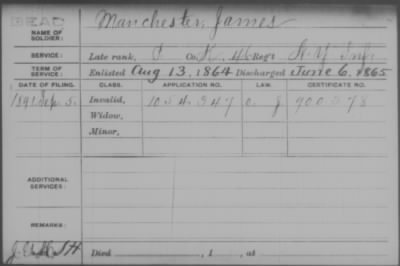 DEAD
NAME OF SOLDIER: Manchester, James
SERVICE: Late rank, P Co. K, 46 Reg't N.Y. Inf.
TERM OF SERVICE: Enlisted Aug 13, 1864 Discharged June 6, 1865
DATE OF FILING. CLASS. APPLICATION NO. LAW. CERTIFICATE NO.
1891 Sep. 5. Invalid, 1054947
Widow,
Minor,
ADDITIONAL SERVICES:
REMARKS:
Died , 1 , at